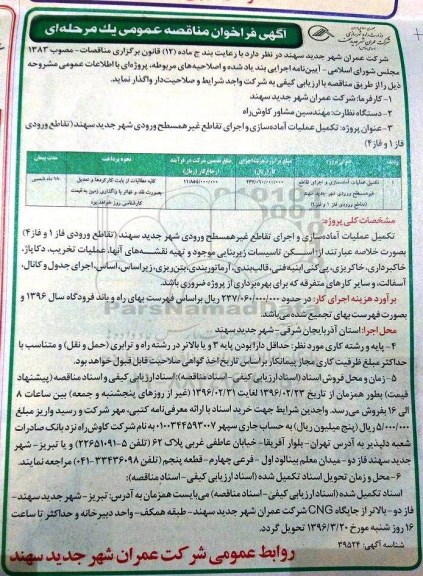 آگهی فراخوان مناقصه عمومی یک مرحله‌ای
شرکت عمران شهر جدید سهند در نظر دارد با رعایت بند ج ماده (۱۲) قانون برگزاری مناقصات - مصوب ۱۳۸۳
مجلس شورای اسلامی - آیین‌نامه اجرایی بند یاد شده و اصلاحیه‌های مربوطه، پروژه‌ای با اطلاعات عمومی مشروحه
ذیل را از طریق مناقصه با ارزیابی کیفی به شرکت واجد شرایط و صلاحیت‌دار واگذار نماید.
۱- کارفرما: شرکت عمران شهر جدید سهند
۲- دستگاه نظارت: مهندسین مشاور کاوش راه
۳- عنوان پروژه: تکمیل عملیات آماده‌سازی و اجرای تقاطع غیرهمسطح ورودی شهر جدید سهند (تقاطع ورودی
فاز ۱ و فاز ۴)
ردیف
نحوه پرداخت
مدت پیمان
۱
تکمیل عملیات آماده‌سازی و اجرای تقاطع
غیرهمسطح ورودی شهر جدید سهند
(تقاطع ورودی فاز ۱ و فاز ۴)
۲۳۷/۰۶۰/۰۰۰/۰۰۰
کلیه مطالبات از بابت کارکردها و تعدیل
بصورت نقد و تهاتر با واگذاری زمین به قیمت
کارشناسی روز خواهد بود
۱۸ ماه شمسی
مشخصات کلی پروژه:
تکمیل عملیات آماده‌سازی و اجرای تقاطع غیرهمسطح ورودی شهر جدید سهند (تقاطع ورودی فاز ۱ و فاز ۴)
بصورت خلاصه عبارتند از: اسکن تاسیسات زیربنایی موجود و تهیه نقشه‌های آنها، عملیات تخریب، دکاپاژ،
خاکبرداری، خاکریزی، پی‌کنی ابنیه فنی، قالب‌بندی، آرماتوربندی، بتن‌ریزی، زیراساس، اساس، اجرای جدول و کانال،
آسفالت، و سایر کارهای متفرقه که برای بهره‌برداری از پروژه ضروری باشد.
برآورد هزینه اجرای کار: در حدود ۲۳۷/۰۶۰/۰۰۰/۰۰۰ ریال براساس فهرست بهای راه و باند فرودگاه سال ۱۳۹۶ و
بصورت فهرست‌بهای تجمیع شده می‌باشد.
محل اجرا: استان آذربایجان شرقی - شهر جدید سهند
۴- پایه و رشته کاری مورد نظر: حداقل دارا بودن پایه ۳ و یا بالاتر در رشته راه و ترابری (حمل و نقل) و متناسب با
حداکثر مبلغ ظرفیت کاری مجاز پیمانکار براساس تاریخ اخذ گواهی صلاحیت قابل قبول خواهد بود.
۵- زمان و محل فروش اسناد (اسناد ارزیابی کیفی - اسناد مناقصه): اسناد ارزیابی کیفی و اسناد مناقصه (پیشنهاد
قیمت) بطور همزمان از تاریخ ۱۳۹۶/۰۲/۲۳ لغایت ۱۳۹۶/۰۲/۳۱ (غیر از روزهای پنجشنبه و جمعه) بین ساعات ۸
الی ۱۶ بفروش می‌رسد. واجدین شرایط جهت خرید اسناد با ارائه معرفی‌نامه کتبی، مهر شرکت و رسید واریز مبلغ
۵/۰۰۰/۰۰۰ ریال (پنج میلیون ریال) به حساب جاری سپهر ۰۱۰۰۳۴۴۵۹۳۰۰۷ به نام شرکت کاوش راه نزد بانک صادرات
شعبه دلپذیر به آدرس تهران - بلوار آفریقا - خیابان عاطفی غربی پلاک ۶۲ (تلفن ۵-۲۲۶۵۱۰۹۱) و یا تبریز - شهر
جدید سهند فاز دو - میدان معلم بینالود اول - فرعی چهارم - قطعه پنجم (تلفن ۳۳۴۳۶۰۹۸-۰۴۱) مراجعه نمایند.
۶- محل و زمان تحویل اسناد تکمیل شده (اسناد ارزیابی کیفی - اسناد مناقصه):
اسناد تکمیل شده (اسناد ارزیابی کیفی - اسناد مناقصه) می‌بایست همزمان به آدرس: تبریز - شهر جدید سهند -
فاز دو - بالاتر از جایگاه CNG شرکت عمران شهر جدید سهند - طبقه همکف - واحد دبیرخانه و حداکثر تا ساعت
۱۶ روز شنبه مورخ ۱۳۹۶/۳/۲۰ تحویل گردد.
شناسه آگهی: ۳۹۵۲۴
روابط عمومی شرکت عمران شهر جدید سهند